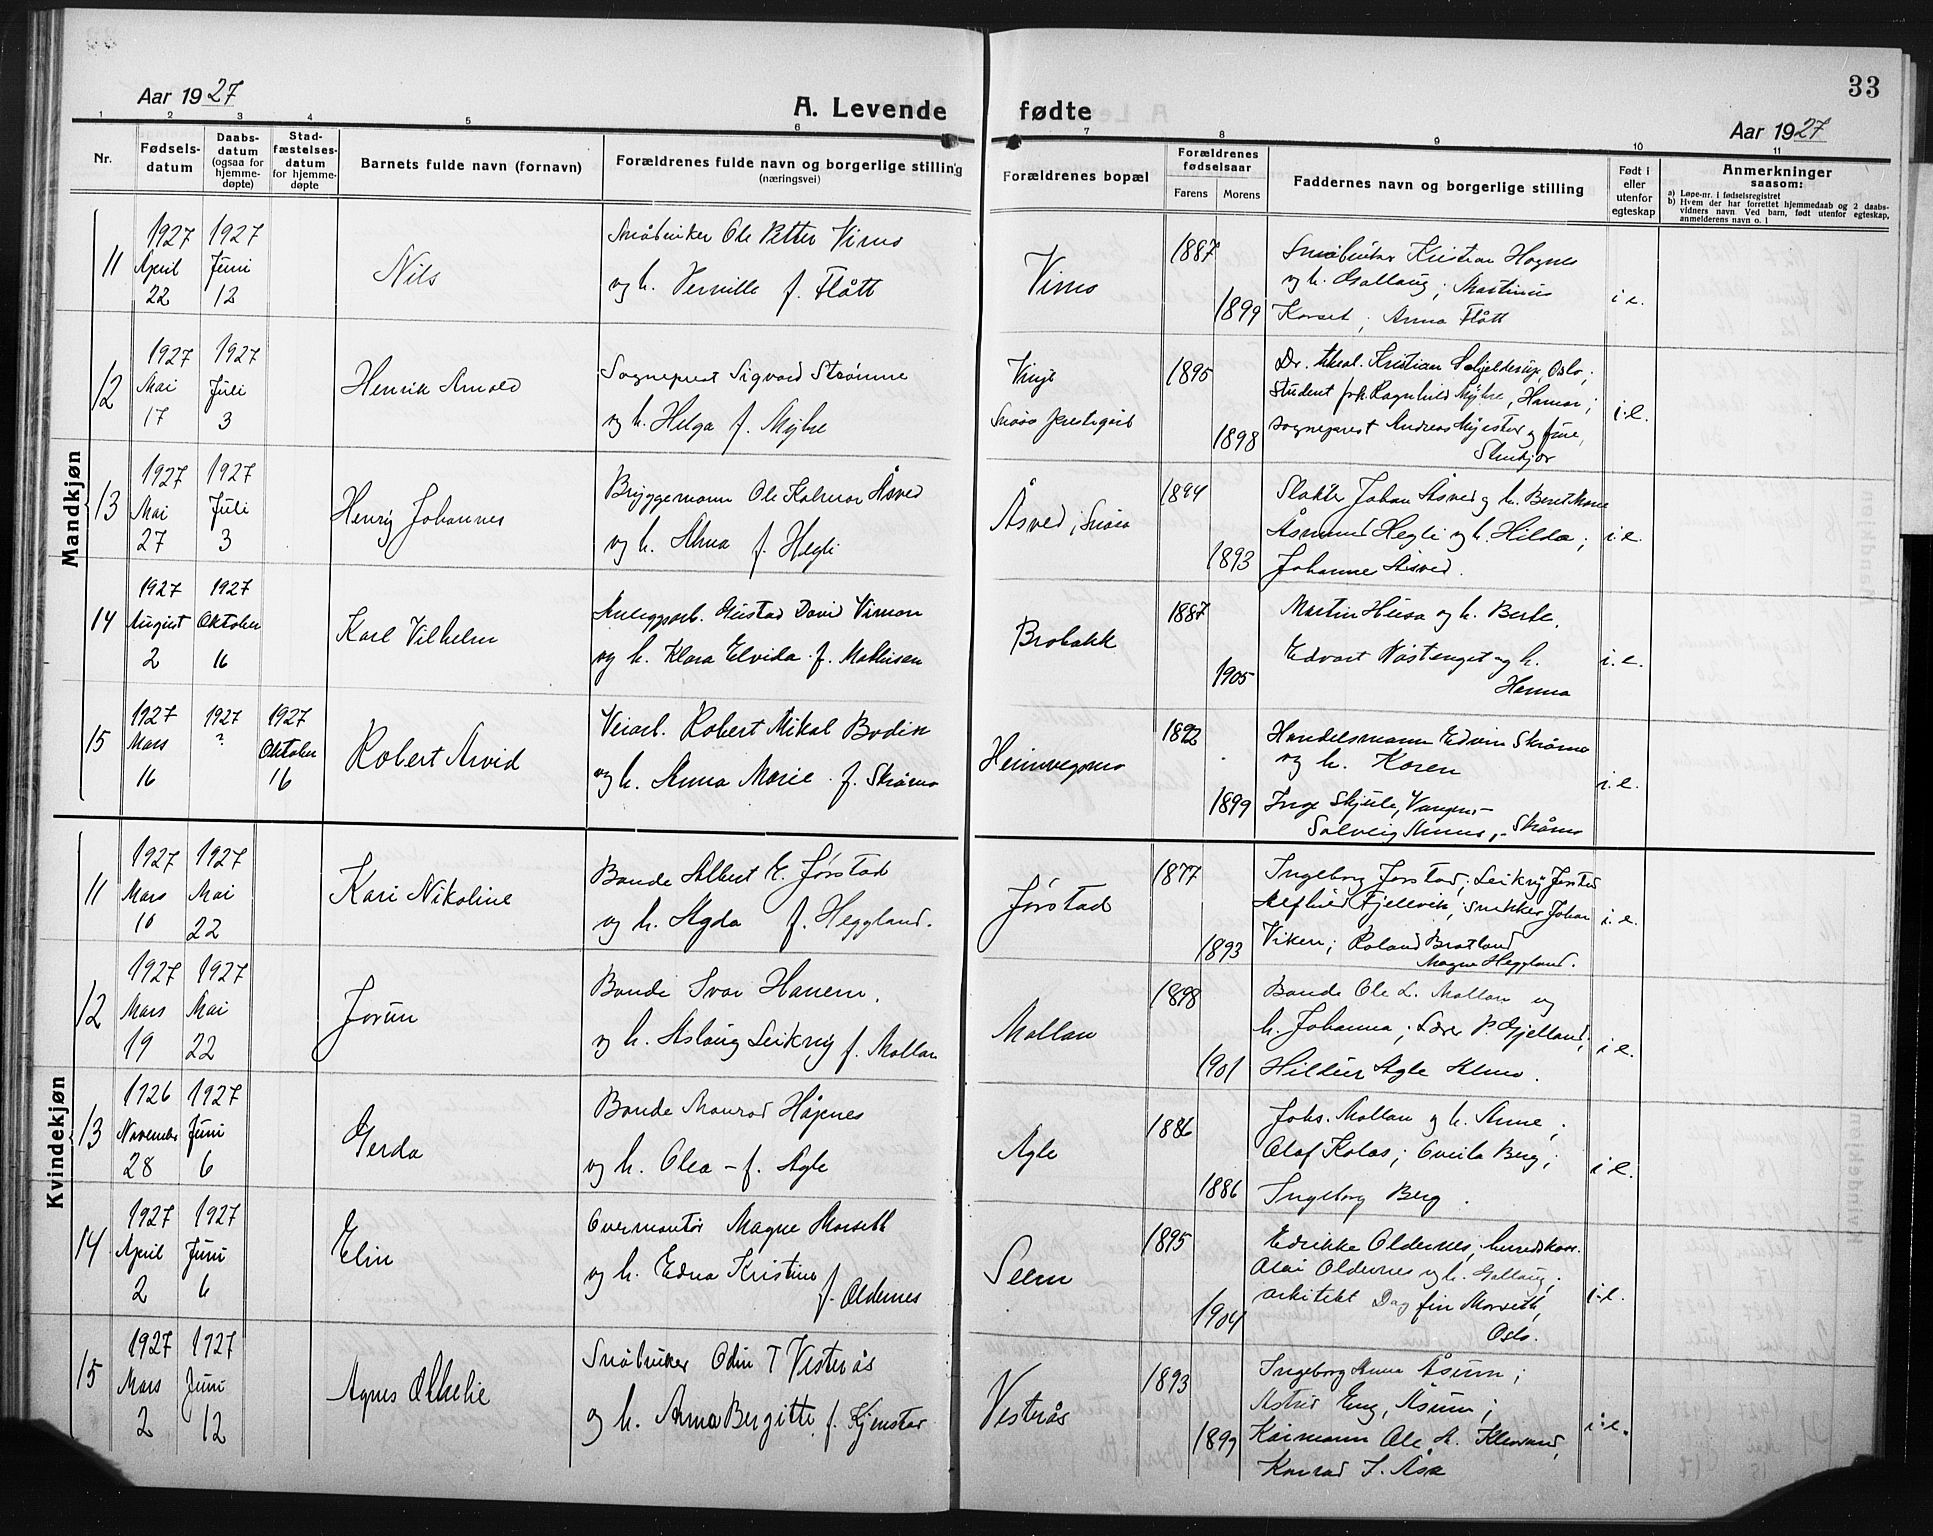 33
Aar 1927
A. Levende fødte
Aar 1927
1 2 3 4 5 6 7 8 9 10 11
Nr.
Fødsels-
datum
Daabs-
datum
(ogsaa for
hjemme-
døpte)
Stad-
fæstelses-
datum
for hjemme-
døpte
Barnets fulde navn (fornavn)
Forældrenes fulde navn og borgerlige stilling
(næringsvei)
Forældrenes bopæl
Forældrenes
fødselsaar
Farens
Morens
Faddernes navn og borgerlige stilling
Født i
eller
utenfor
egteskap
Anmerkninger
saasom:
a) Løpe-nr. i fødselsregistret
b) Hvem der har forrettet hjemmedaab og 2 daabs-
vidners navn. Ved barn, født utenfor egteskap,
anmelderens navn o. l
Mandkjøn
11
1927 April 22
1927 Juni 12
Nils
Småbruker Ole Petter Vimo
og h. f. Flått
Vimo
1887
1899
Småbruker Kristian Hognes
og h. Martinus
Anna Flått
i e.
12
1927 Mai 17
1927 Juli 3
Henrik Arnold
Sogneprest Sigvard Strømme
og h. Helga f. Myhre
Vinje
Snåsa prestegård
1895
1898
Dr. theol. Kristian Schjelderup, Oslo;
Student frk. Ragnhild Myhre, Hamar;
sogneprest Andreas og frue,
Stenkjær
i. e.
13
1927 Mai 27
1927 Juli 3
Henry Johannes
Byggemann Ole Kalmar Åsved
og h. Alma f. Hegli
Åsved, Snåsa
1894
1893
Slakter Johan Åsved og h. Beret Marie
Åsmund Hegli og h. Hilda;
Johanne Åsved.
i e.
14
1927 August 2
1927 Oktober 16
Karl Vilhelm
Anleggsarb. Gustav David Viman
og h. Klara Elvida f. Mathisen
Brobakk
1887
1905
Martin Husa og h. Berte.
Edvart og h.
Hanna
i. e.
15
1927 Mars 16
1927 ?
1927 Oktober 16
Robert Arvid
Veiarb. Robert Mikal Bodin
og h. Anna Marie f. Skrømo
1892
1899
Handelsmann Edvin Skrømo
og h. Karen
Inge Skjule,
Solveig
i. e.
Kvindekjøn
11
1927 Mars 10
1927 Mai 22
Kari Nikoline
Bonde Albert E. Jørstad
og h. Agda f. Heggland.
Jørstad
1877
1893
Ingeborg Jørstad; Leikny Jørstad
Alfhild Fjellvik; snekker Johan
Viken; Roland Bratland
Magne Heggland.
i. e.
12
1927 Mars 19
1927 Mai 22
Jorun
Bonde Ivar Hanem.
og h. Aslaug Leikny f. Mollan
Mollan
1898
1901
Bonde Ole L. Mollan og
h. Johanna; Lærer P. Gjelland;
Hildur Agle
i e.
13
1926 November 28
1927 Juni 6
Gerda
Bonde Manrad Håpnes
og h. Olea - f. Agle
Agle
1886
1886
Johs. Mollan og h. Anne;
Olaf Kolås; Berg;
Ingeborg Berg.
i. e.
14
1927 April 2
1927 Juni 6
Elin
Overmontør Magne Morseth
og h. Edna Kristine
f. Oldernes
Seem
1895
1904
Edrikke Oldernes, herredskass.
Olav Oldernes og h.
arkitekt Dagfin Morseth,
Oslo.
i. e.
15
1927 Mars 2
1927 Juni 12
Agnes Othelie
Småbruker Odin T Vesterås
og h. Anna Bergitte f. Kjenstad
Vesterås
1893
1899
Ingeborg Anna Åsum;
Astrid Eng, Åsum;
Ole
Konrad J.
i. e.